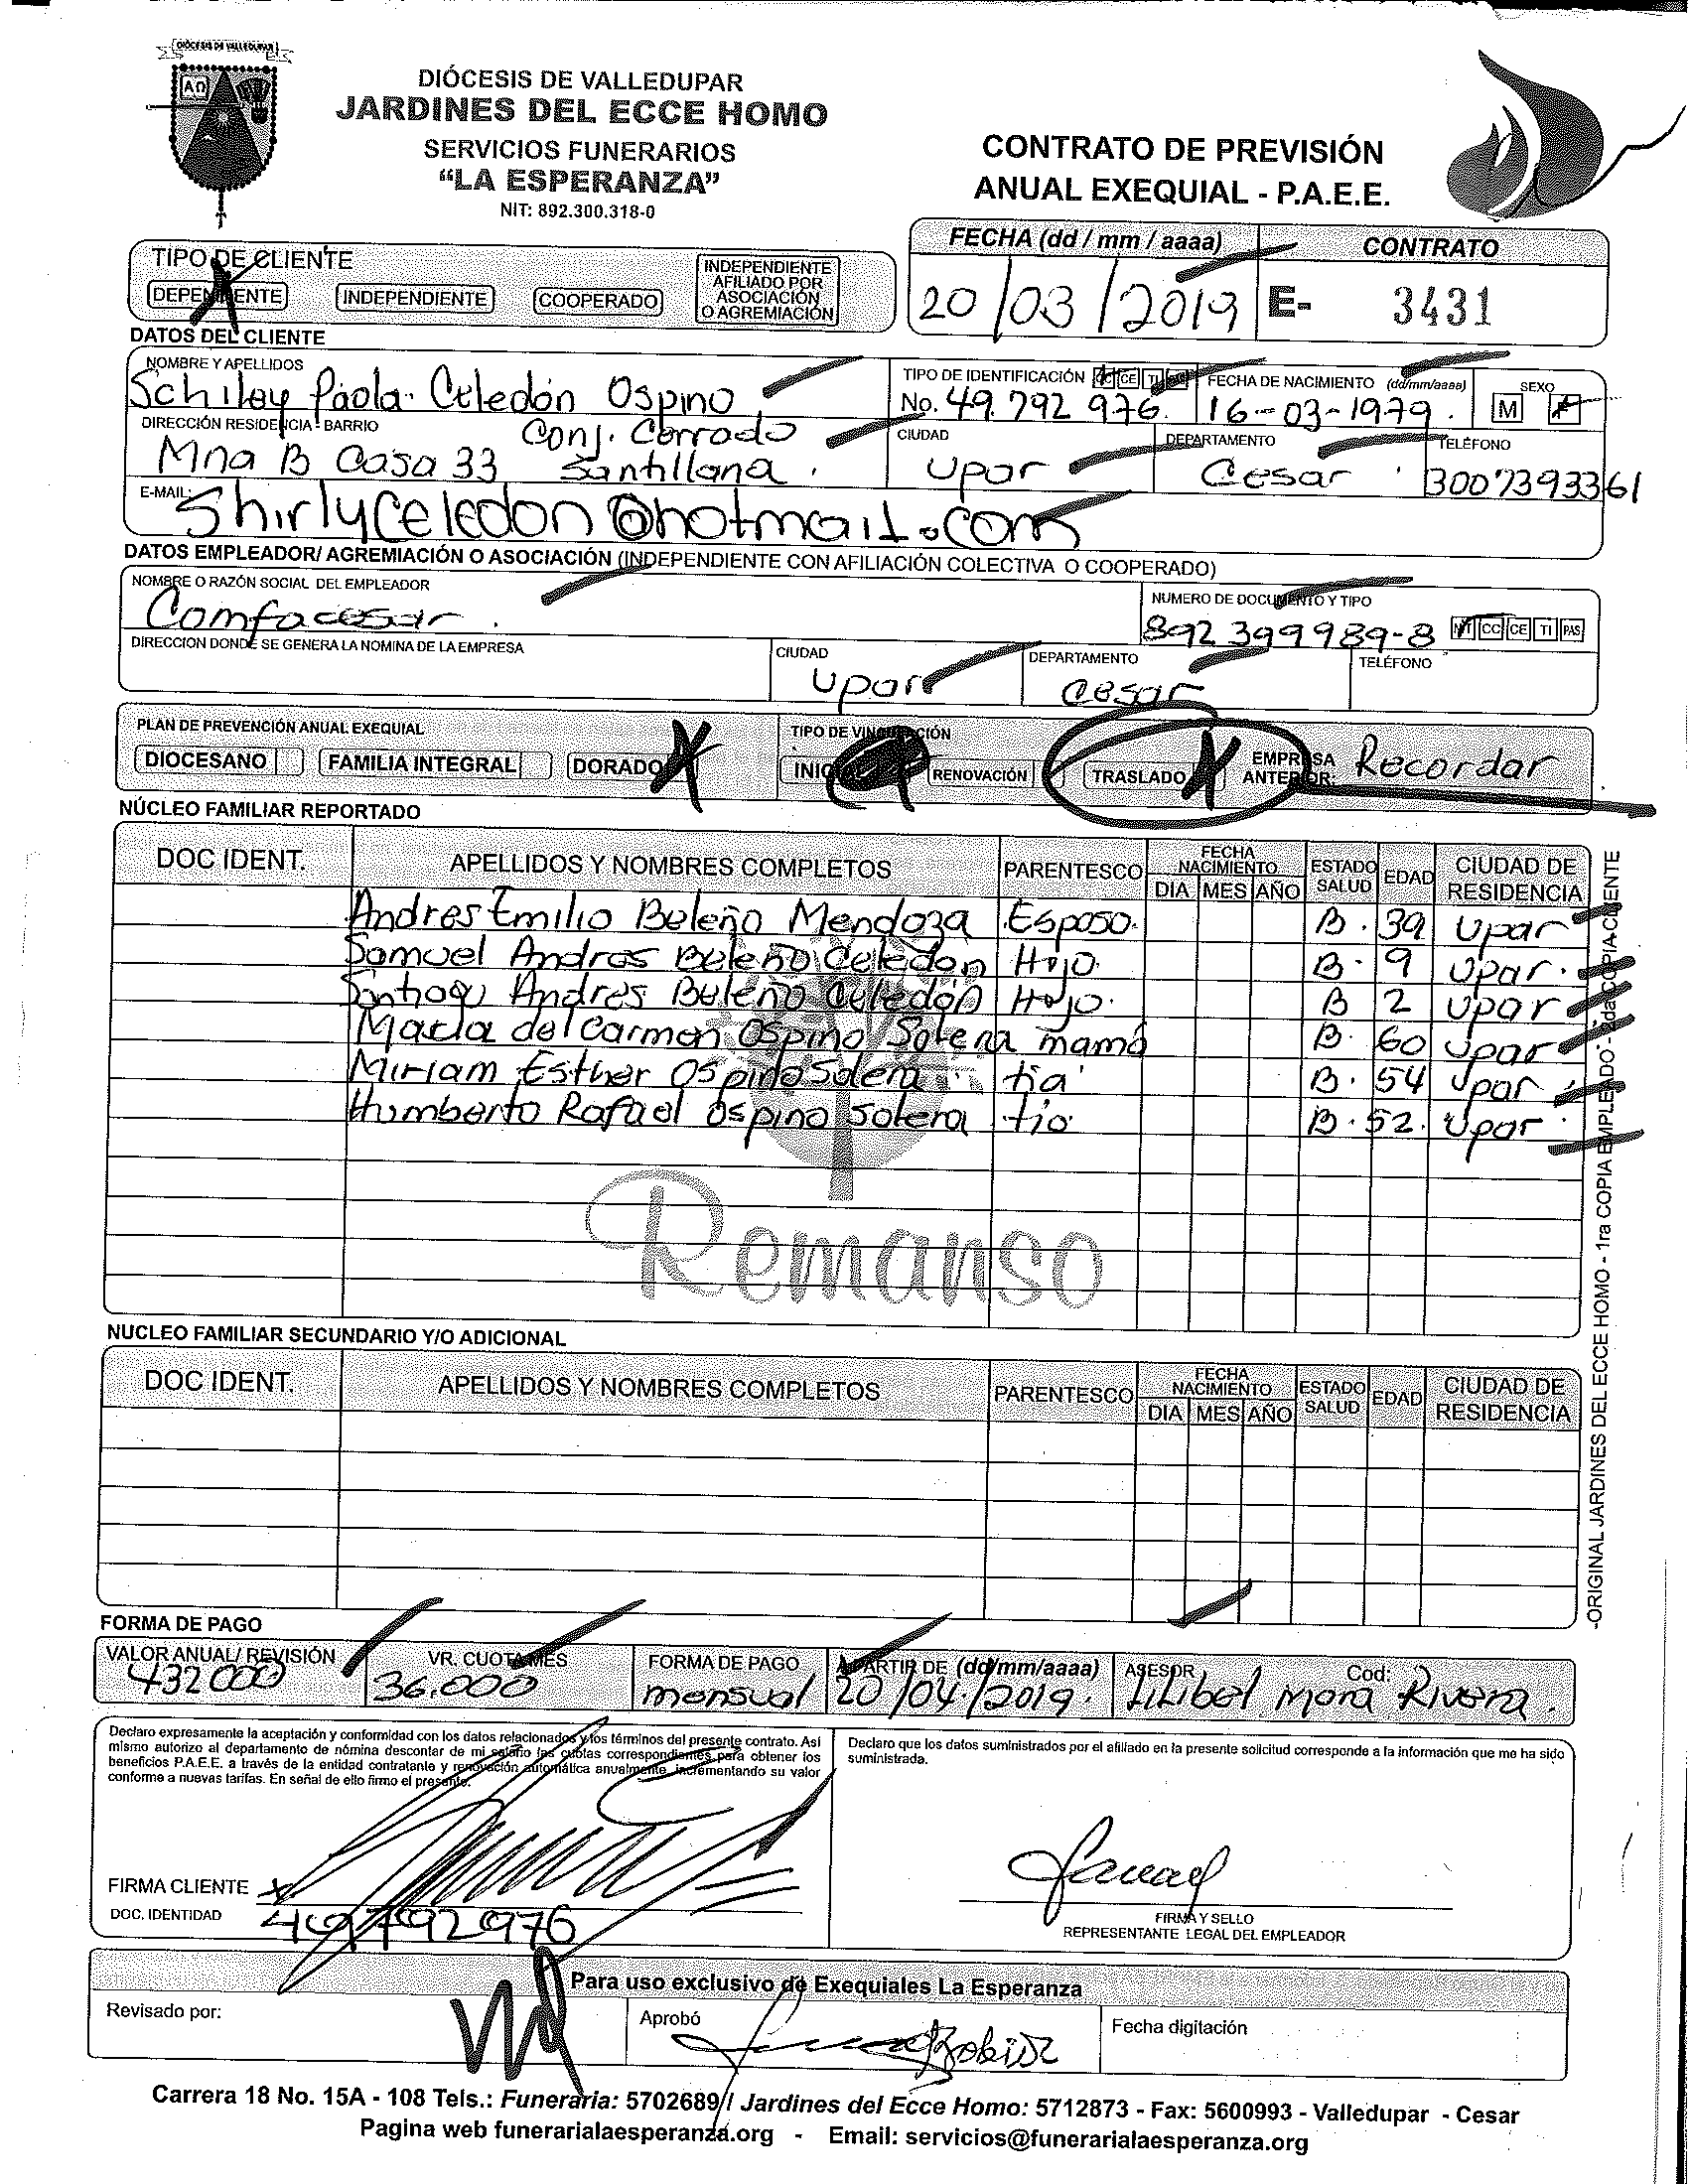 DIÓCESIS DE VALLEDUPAR
DIÓCESIS DE VALLEDUPAR
JARDINES DEL ECCE HOMO
SERVICIOS FUNERARIOS
"LA ESPERANZA"
NIT: 892.300.318-0
CONTRATO DE PREVISIÓN
ANUAL EXEQUIAL - P.A.E.E.
TIPO DE CLIENTE
DEPENDIENTE INDEPENDIENTE COOPERADO INDEPENDIENTE AFILIADO POR ASOCIACIÓN O AGREMIACIÓN
FECHA (dd / mm / aaaa) CONTRATO
20/03/2019 E- 3431
DATOS DEL CLIENTE
NOMBRE Y APELLIDOS TIPO DE IDENTIFICACIÓN CC CE TI FECHA DE NACIMIENTO (dd/mm/aaaa) SEXO
Schiley Paola Celedón Ospino No. 49.792 976. 16-03-1979. M F
DIRECCIÓN RESIDENCIA - BARRIO CIUDAD DEPARTAMENTO TELÉFONO
Mna B Casa 33 Conj. Cerrado Santillana. Upar Cesar 3007393361
E-MAIL: Shirlyceledon@hotmail.com
DATOS EMPLEADOR/ AGREMIACIÓN O ASOCIACIÓN (INDEPENDIENTE CON AFILIACIÓN COLECTIVA O COOPERADO)
NOMBRE O RAZÓN SOCIAL DEL EMPLEADOR NUMERO DE DOCUMENTO Y TIPO
Comfacesar. 892 399989-8 NIT CC CE TI PAS
DIRECCION DONDE SE GENERA LA NOMINA DE LA EMPRESA CIUDAD DEPARTAMENTO TELÉFONO
Upar Cesar
PLAN DE PREVENCIÓN ANUAL EXEQUIAL TIPO DE VINCULACIÓN
DIOCESANO FAMILIA INTEGRAL DORADO X INICIAL RENOVACIÓN TRASLADO X EMPRESA ANTERIOR: Recordar
NÚCLEO FAMILIAR REPORTADO
DOC IDENT. APELLIDOS Y NOMBRES COMPLETOS PARENTESCO FECHA NACIMIENTO DIA MES AÑO ESTADO SALUD EDAD CIUDAD DE RESIDENCIA
Andres Emilio Beleño Mendoza Esposo. B. 39 Upar
Samuel Andres Beleño Celedon Hijo. B. 9 Upar.
Santiago Andres Beleño Celedón Hijo. B 2 Upar
Maria del Carmen Ospino Solera mamá B. 60 Upar
Miriam Esther Ospino Solera tia B. 54 Upar
Humberto Rafael Ospino Solera tio B. 52. Upar
Remanso
NUCLEO FAMILIAR SECUNDARIO Y/O ADICIONAL
DOC IDENT. APELLIDOS Y NOMBRES COMPLETOS PARENTESCO FECHA NACIMIENTO DIA MES AÑO ESTADO SALUD EDAD CIUDAD DE RESIDENCIA
-ORIGINAL JARDINES DEL ECCE HOMO - 1ra COPIA EMPLEADO - 2da COPIA CLIENTE
FORMA DE PAGO
VALOR ANUAL/ REVISIÓN VR. CUOTA MES FORMA DE PAGO A PARTIR DE (dd/mm/aaaa) ASESOR Cod:
432000 36.000 mensual 20/04/2019. Lilibel Mora Rivera.
Declaro expresamente la aceptación y conformidad con los datos relacionados y los términos del presente contrato. Así
mismo autorizo al departamento de nómina descontar de mi salario las cuotas correspondientes para obtener los
beneficios P.A.E.E. a través de la entidad contratante y renovación automática anualmente, incrementando su valor
conforme a nuevas tarifas. En señal de ello firmo el presente.
Declaro que los datos suministrados por el afiliado en la presente solicitud corresponde a la información que me ha sido
suministrada.
FIRMA CLIENTE
DOC. IDENTIDAD 49792976
FIRMA Y SELLO
REPRESENTANTE LEGAL DEL EMPLEADOR
Para uso exclusivo de Exequiales La Esperanza
Revisado por: Aprobó Fecha digitación
Carrera 18 No. 15A - 108 Tels.: Funeraria: 5702689 / Jardines del Ecce Homo: 5712873 - Fax: 5600993 - Valledupar - Cesar
Pagina web funerarialaesperanza.org - Email: servicios@funerarialaesperanza.org